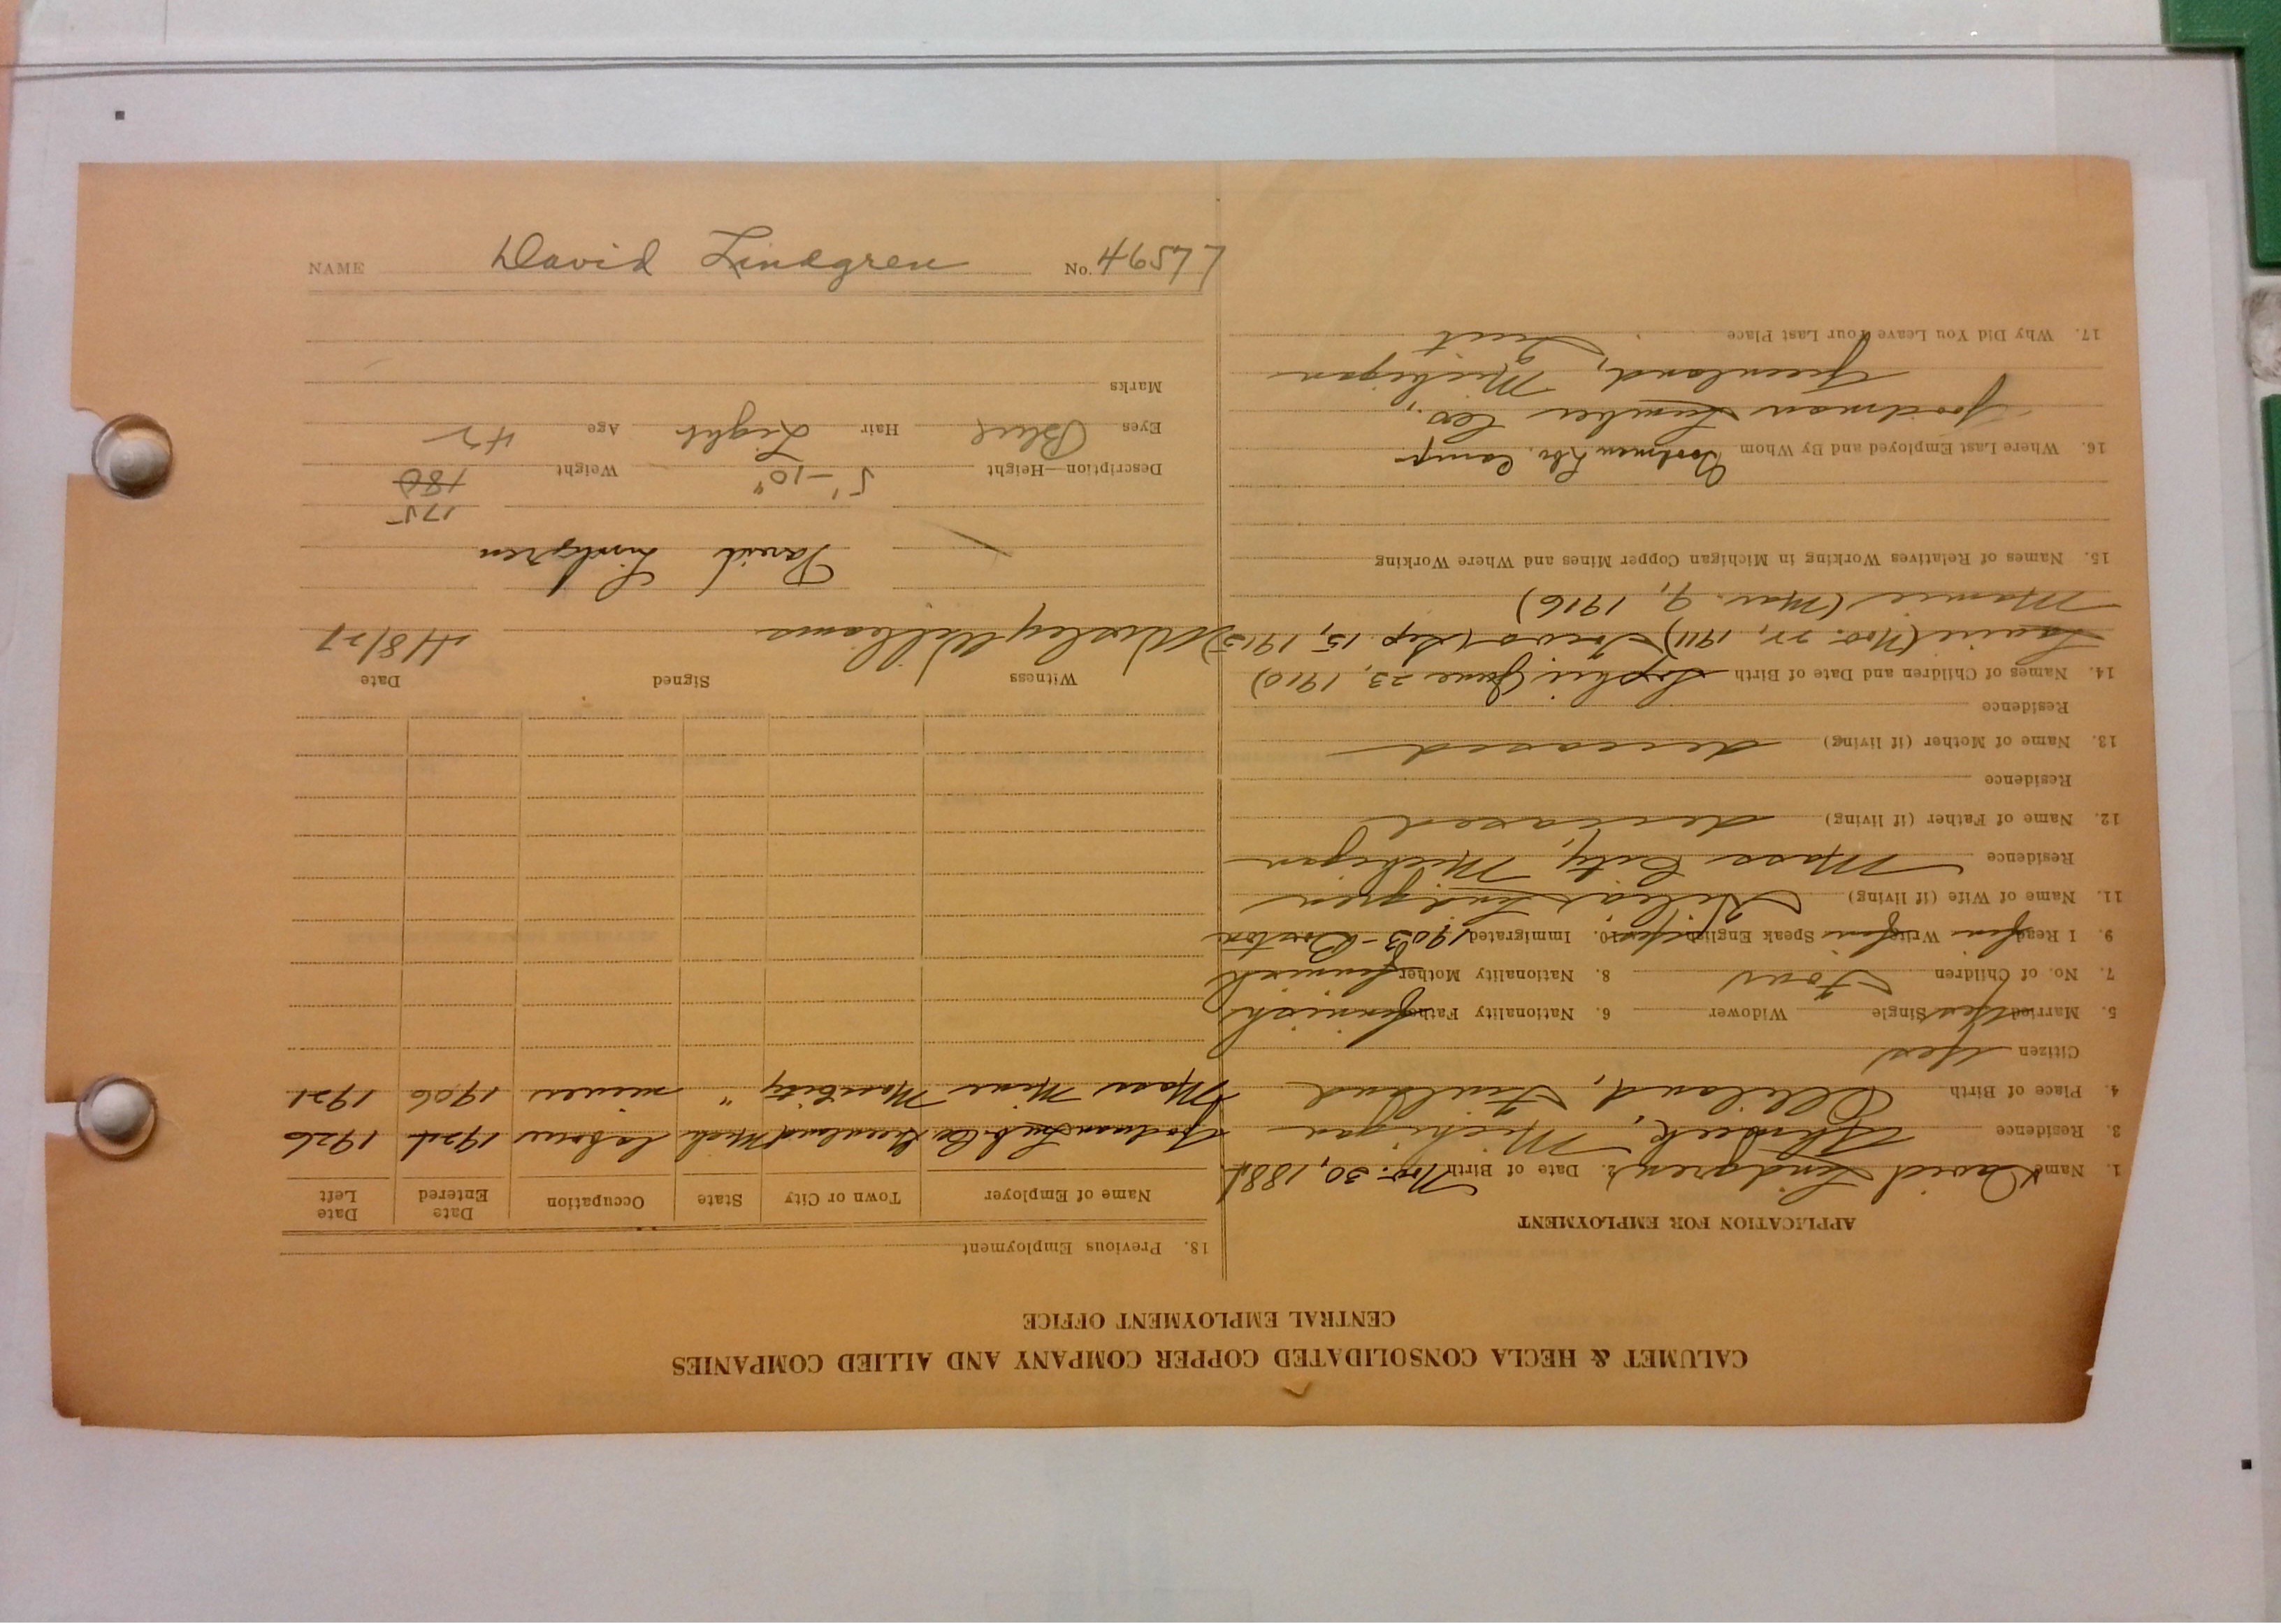 CALUMET & HECLA CONSOLIDATED COPPER COMPANY AND ALLIED COMPANIES
CENTRAL EMPLOYMENT OFFICE
APPLICATION FOR EMPLOYMENT
1. Name David Lindgren 2. Date of Birth Nov. 30, 1884
3. Residence Ahmeek, Michigan
4. Place of Birth Finland
Citizen Yes
5. Married Yes Single Widower 6. Nationality Father Finnish
7. No. of Children Four 8. Nationality Mother Finnish
9. I Read Write Speak English 10. Immigrated 1903 - Boston
11. Name of Wife (if living) Hilda Lindgren
Residence Mass City, Michigan
12. Name of Father (if living) deceased
Residence
13. Name of Mother (if living) deceased
Residence
14. Names of Children and Date of Birth Sophie (June 23, 1910)
(Nov. 22, 1911) (Sep. 15, 1913)
Mamie (Mar. 9, 1916)
15. Names of Relatives Working in Michigan Copper Mines and Where Working
16. Where Last Employed and By Whom Goodman Lbr. Camp
Goodman Lumber Co.,
Greenland, Michigan
17. Why Did You Leave Your Last Place Quit
18. Previous Employment
Name of Employer Town or City State Occupation Date Entered Date Left
Goodman Lumb. Co. Greenland Mich labour 1924 1926
Mass Mine Mass City " miner 1906 1921
Witness Signed Date
Wesley Williams 4/8/27
David Lindgren
175
Description—Height 5'-10" Weight 180
Eyes Blue Hair Light Age 42
Marks
NAME David Lindgren No. 46577